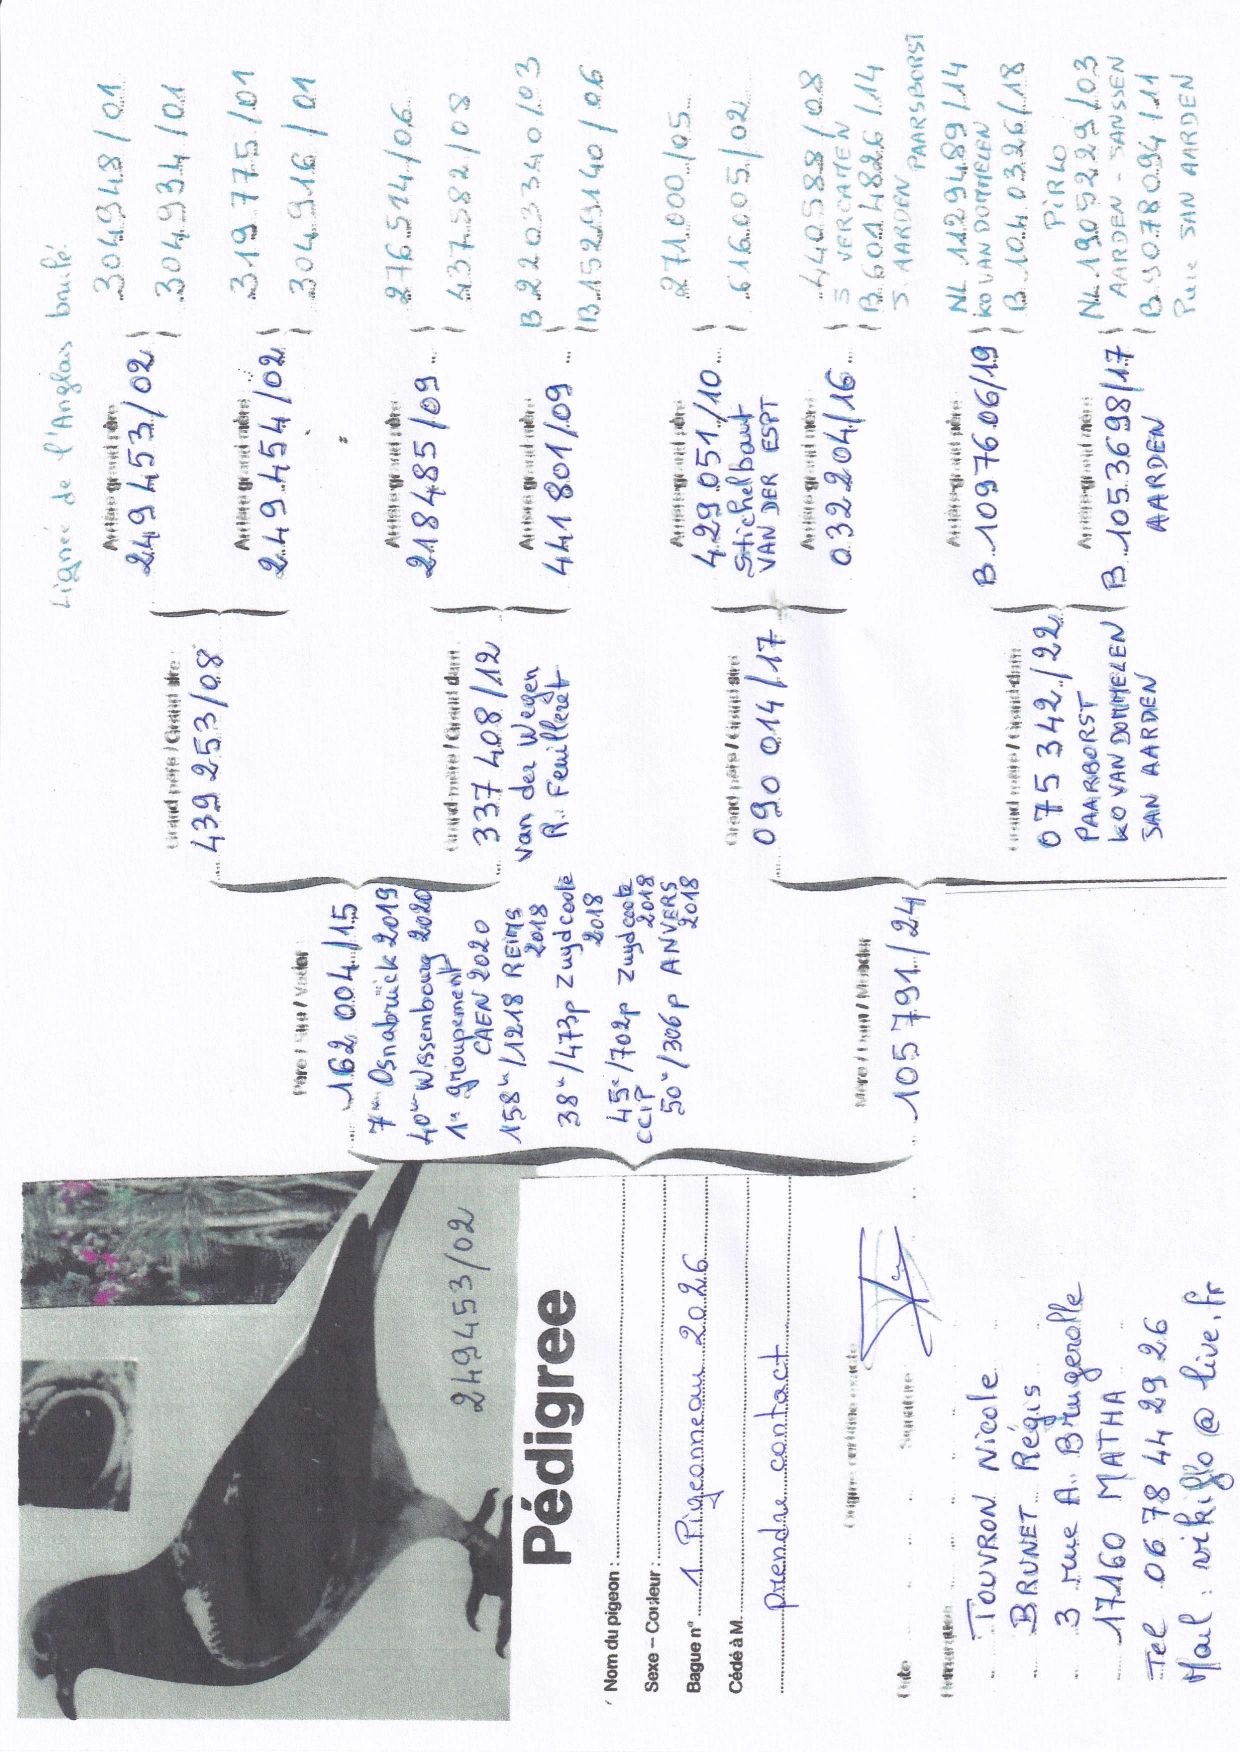 249453/02
Pédigree
Nom du pigeon :
Sexe – Couleur :
Bague n° 1 Pigeonneau 2026
Cédé à M.
prendre contact
Origine certifiée exacte
Date
Signature
Remarques
TOUVRON Nicole
BRUNET Régis
3 rue A. Brugerolle
17160 MATHA
Tel 06 78 44 29 26
Mail : vikiflo@live.fr
Père / Sire / Vader
162 004/15
7e Osnabrück 2019
40e Wissembourg 2020
1er groupement
CAEN 2020
158e/1218 REIMS
2018
38e/473p Zuydcoote
2018
45e/702p Zuydcoote
CCIP 2018
50e/306p ANVERS
2018
Mère / Dam / Moeder
105791/24
Grand père / Grand sire
439 253/08
Grand mère / Grand dam
337 408/12
van der Wegen
R. Feuilleret
Grand père / Grand sire
090 014/17
Grand mère / Grand dam
075 342/22
PAARBORST
KO VAN DOMMELEN
JAN AARDEN
Lignée de l'Anglais barré
Arrière grand père
249 453/02
Arrière grand mère
249 454/02
Arrière grand père
218485/09
Arrière grand mère
441 801/09
Arrière grand père
429 051/10
Stichelbaut
VAN DER ESPT
Arrière grand mère
032204/16
Arrière grand père
B 1097606/19
Arrière grand mère
B 1053698/17
AARDEN
304948/01
304934/01
319775/01
304916/01
276514/06
437582/08
B 2203340/03
B 1529140/06
271000/05
616005/02
440588/08
S VERCAMEN
B 6014826/14
J. AARDEN PAARSBORST
NL 1129489/14
KO VAN DOMMELEN
B 1040326/18
PIRLO
NL 1905229/03
AARDEN - JANSSEN
B 3078094/11
Pure JAN AARDEN